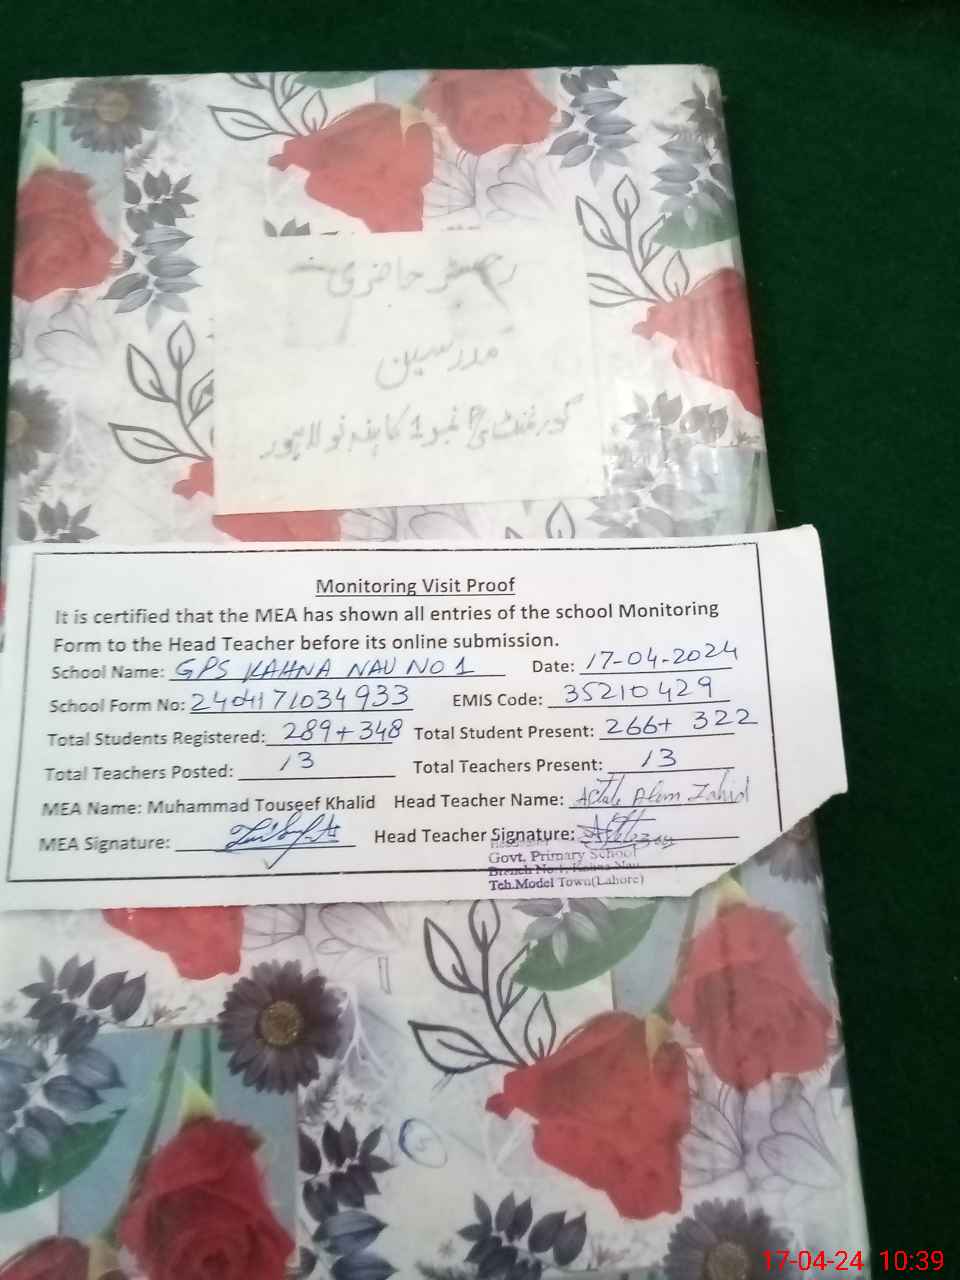 رجسٹر حاضری
مدرسین
گورنمنٹ نمبر 1 کاہنہ نو لاہور
Monitoring Visit Proof
It is certified that the MEA has shown all entries of the school Monitoring
Form to the Head Teacher before its online submission.
School Name: GPS KAHNA NAU NO 1 Date: 17-04-2024
School Form No: 2404171034933 EMIS Code: 35210429
Total Students Registered: 289+348 Total Student Present: 266+ 322
Total Teachers Posted: 13 Total Teachers Present: 13
MEA Name: Muhammad Touseef Khalid Head Teacher Name: Zahid
MEA Signature: Head Teacher Signature:
Govt. Primary School
Branch No.1, Kahna Nau
Teh.Model Town(Lahore)
17-04-24 10:39